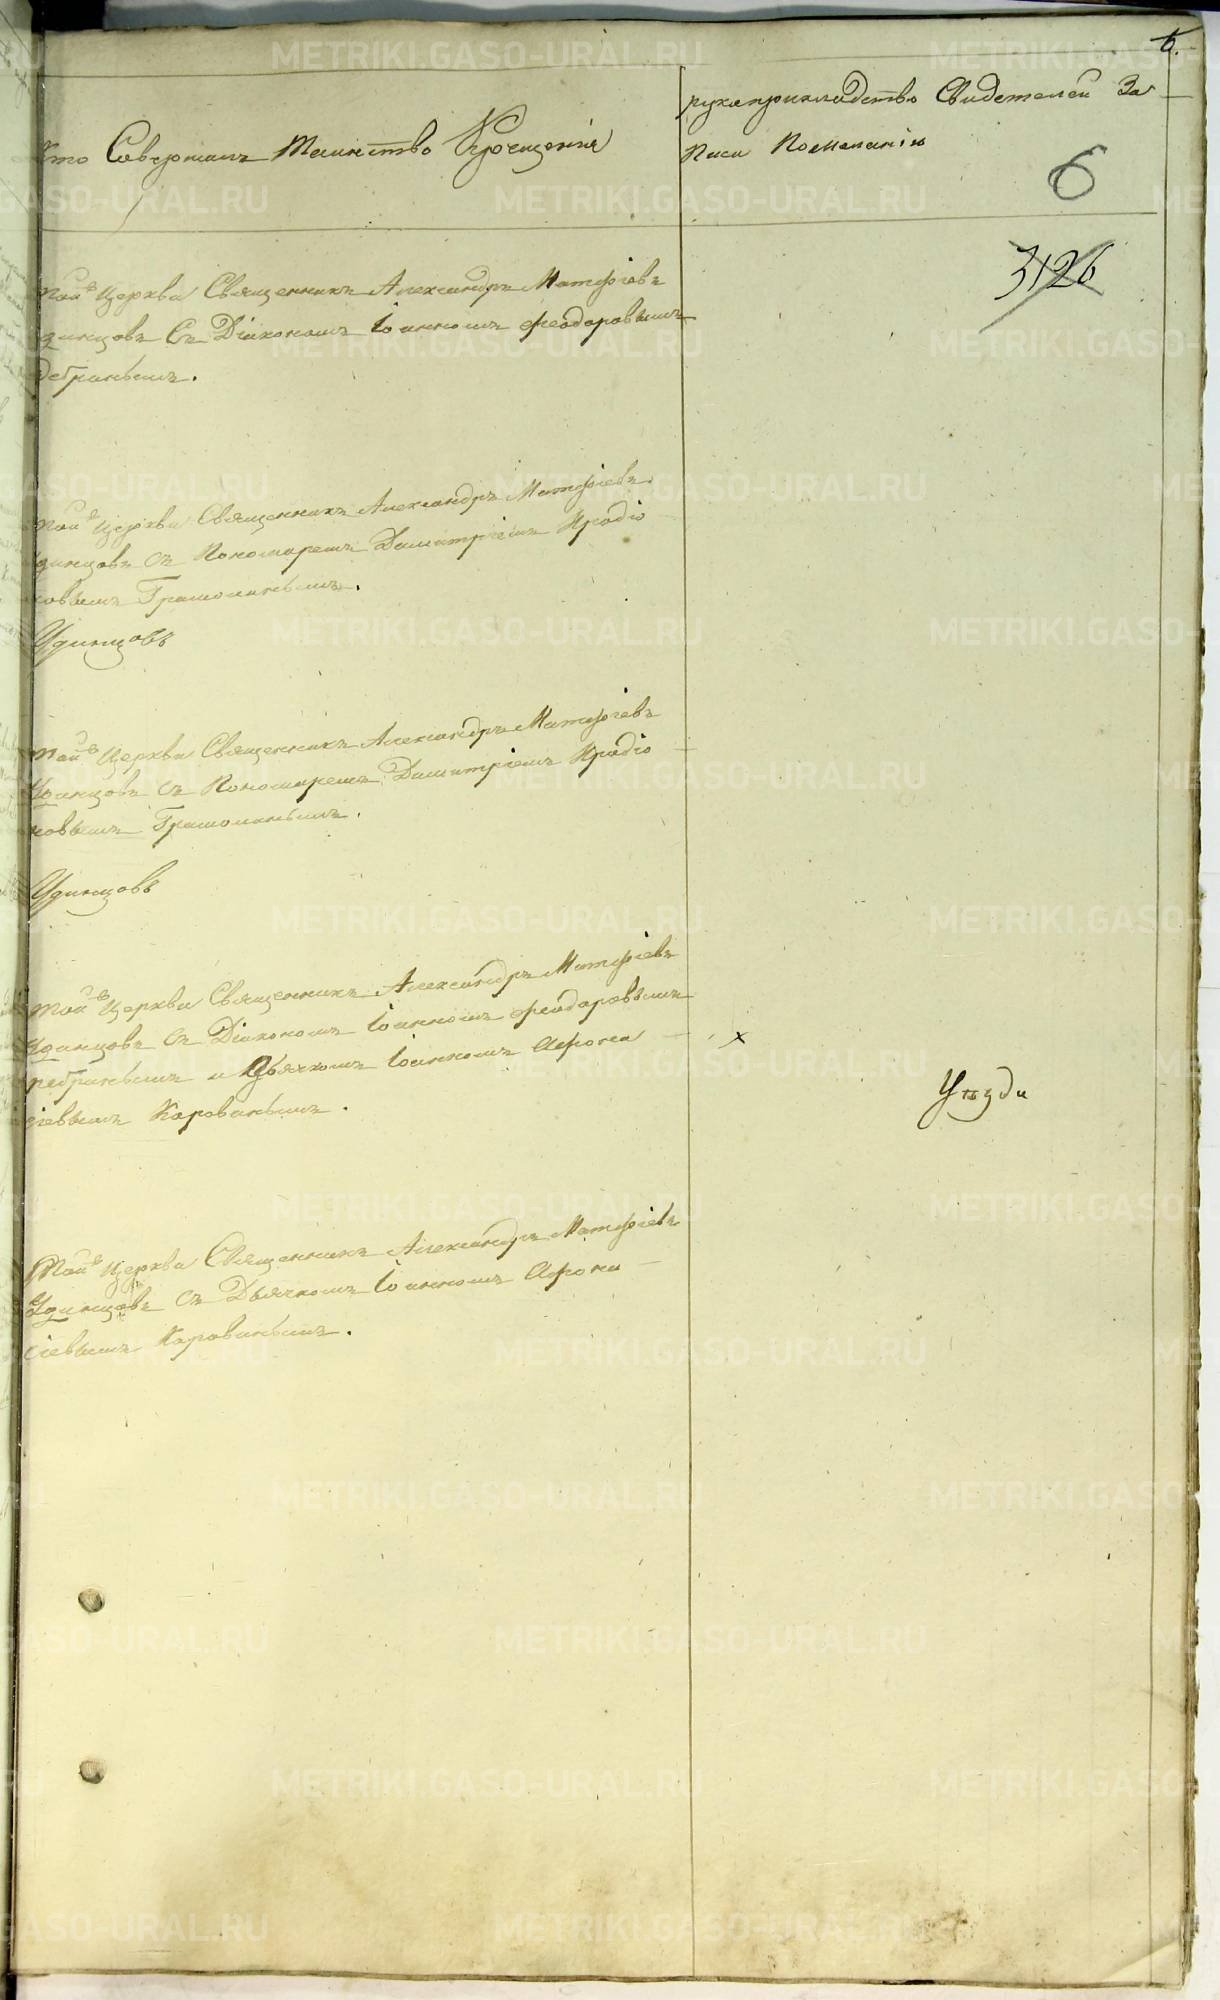 6.
Кто Совершалъ Таинство Крещенія
рукоприкладство Свидетелей За
писи По желанію
6
3126
той же Церкви Священникъ Александръ Матфіевъ
динцовъ Съ Діакономъ Іоанномъ Феодоровымъ
той же Церкви Священникъ Александръ Матфіевъ
динцовъ съ Пономаремъ Димитріемъ Иродіо
новымъ Грамолинымъ.
Удинцовъ
той же Церкви Священникъ Александръ Матфіевъ
Удинцовъ съ Пономаремъ Димитріемъ Иродіо
новымъ Грамолинымъ.
Удинцовъ
той же Церкви Священникъ Александръ Матфіевъ
Удинцовъ съ Діакономъ Іоанномъ Феодоровымъ
и Дьячкомъ Іоанномъ Афона
сіевымъ Коровинымъ.
Той же Церкви Священникъ Александръ Матфіевъ
Удинцовъ съ Дьячкомъ Іоанномъ Афона
сіевымъ Коровинымъ.
METRIKI.GASO-URAL.RU